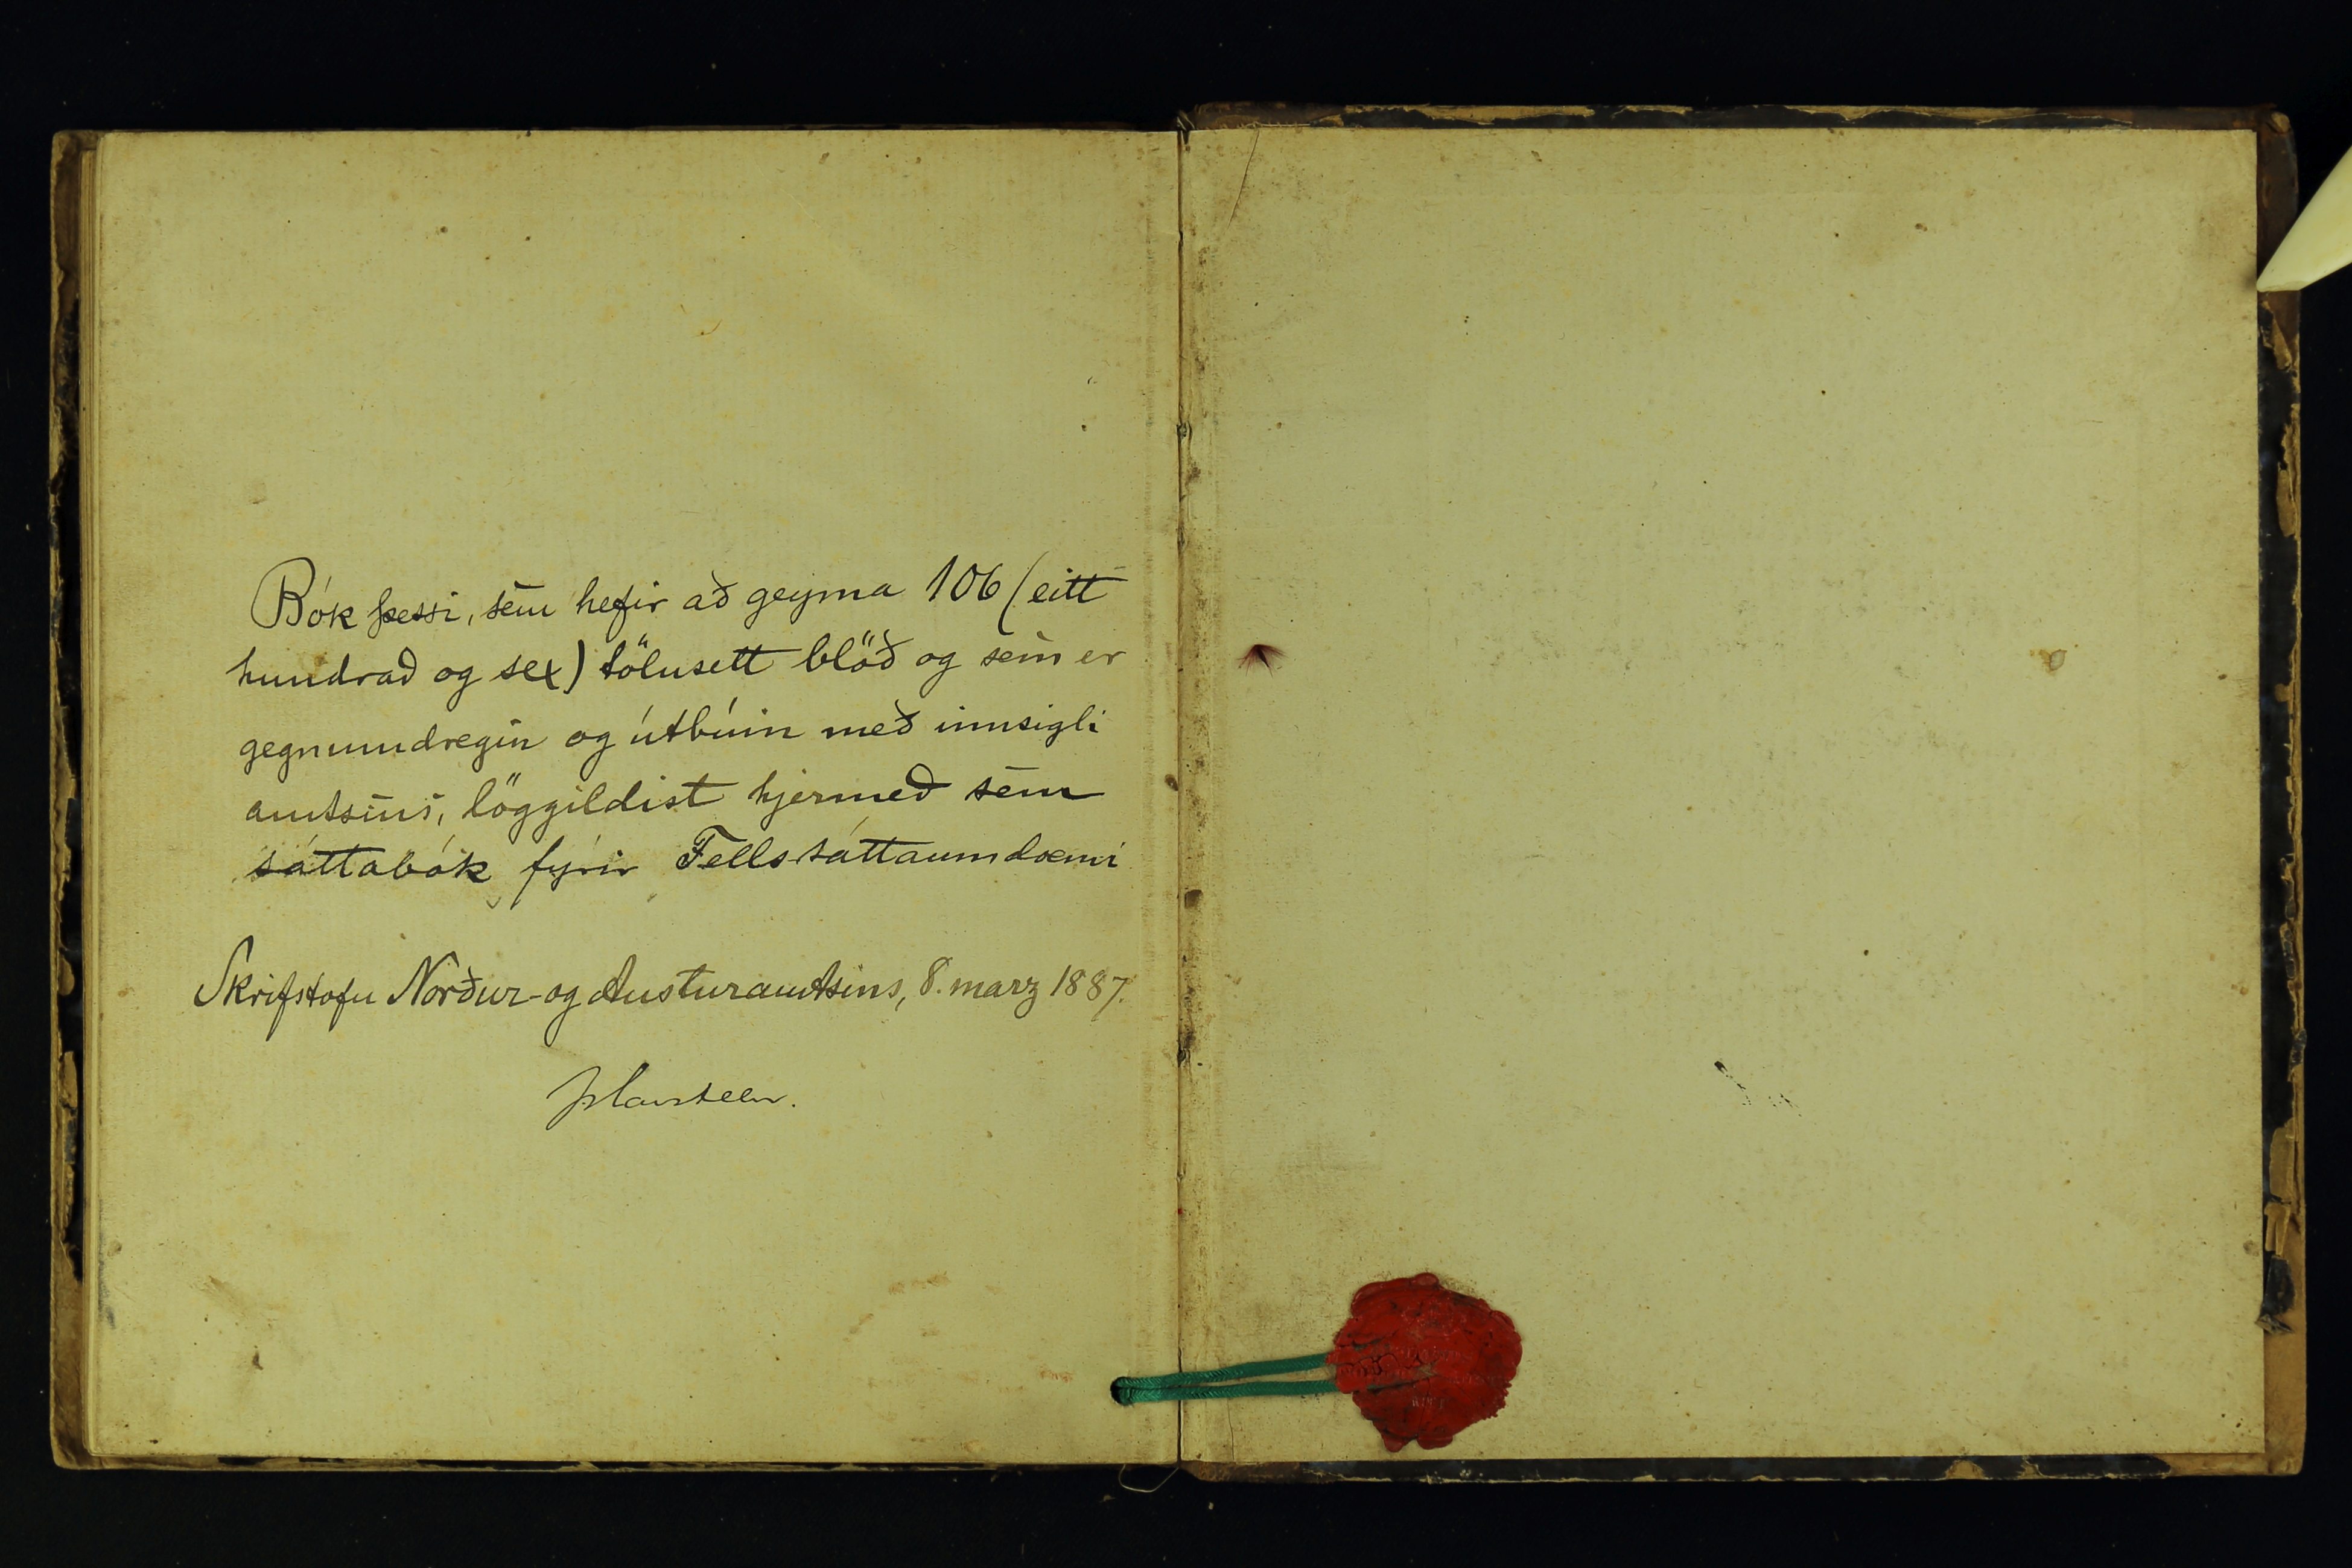 Bók þessi, sem hefir að geyma 106 (eitt
hundrað og sex) tölusett blöð og sem er
gegnumdregin og útbúin með innsigli
amtsins, löggildist hjermeð sem
sáttabók fyrir Fellssáttaumdæmi
Skrifstofu Norður- og Austuramtsins, 8. marz 1887.
JHavsteen.